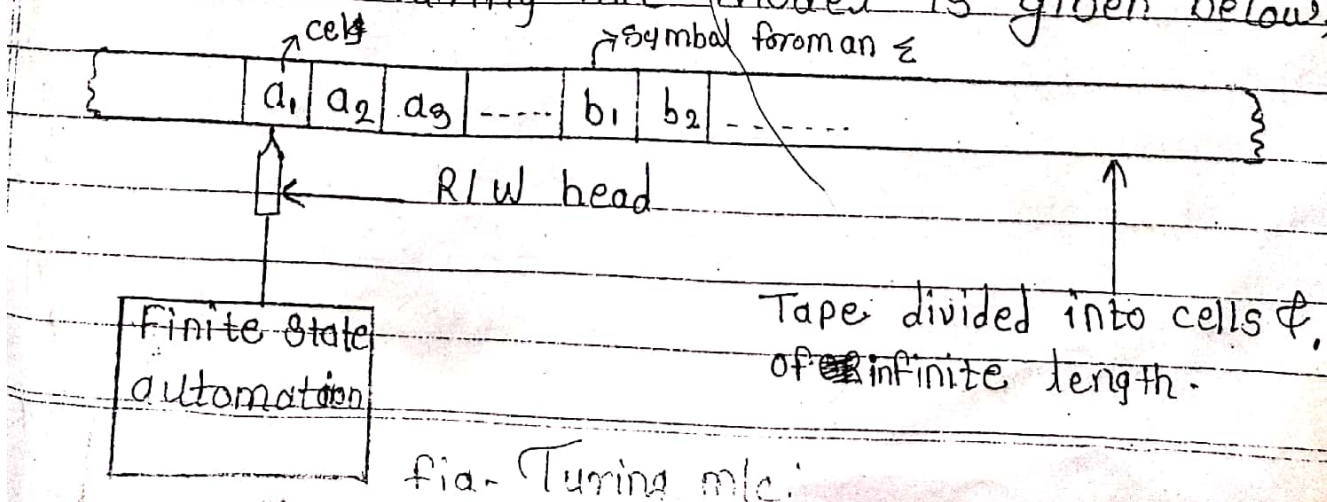 turing m/c model is given below,
cells
symbal foroman Σ
a₁ a₂ a₃ ----- b₁ b₂ -------
R/W head
Finite State
automation
Tape divided into cells &
of infinite length.
fig- Turing m/c.